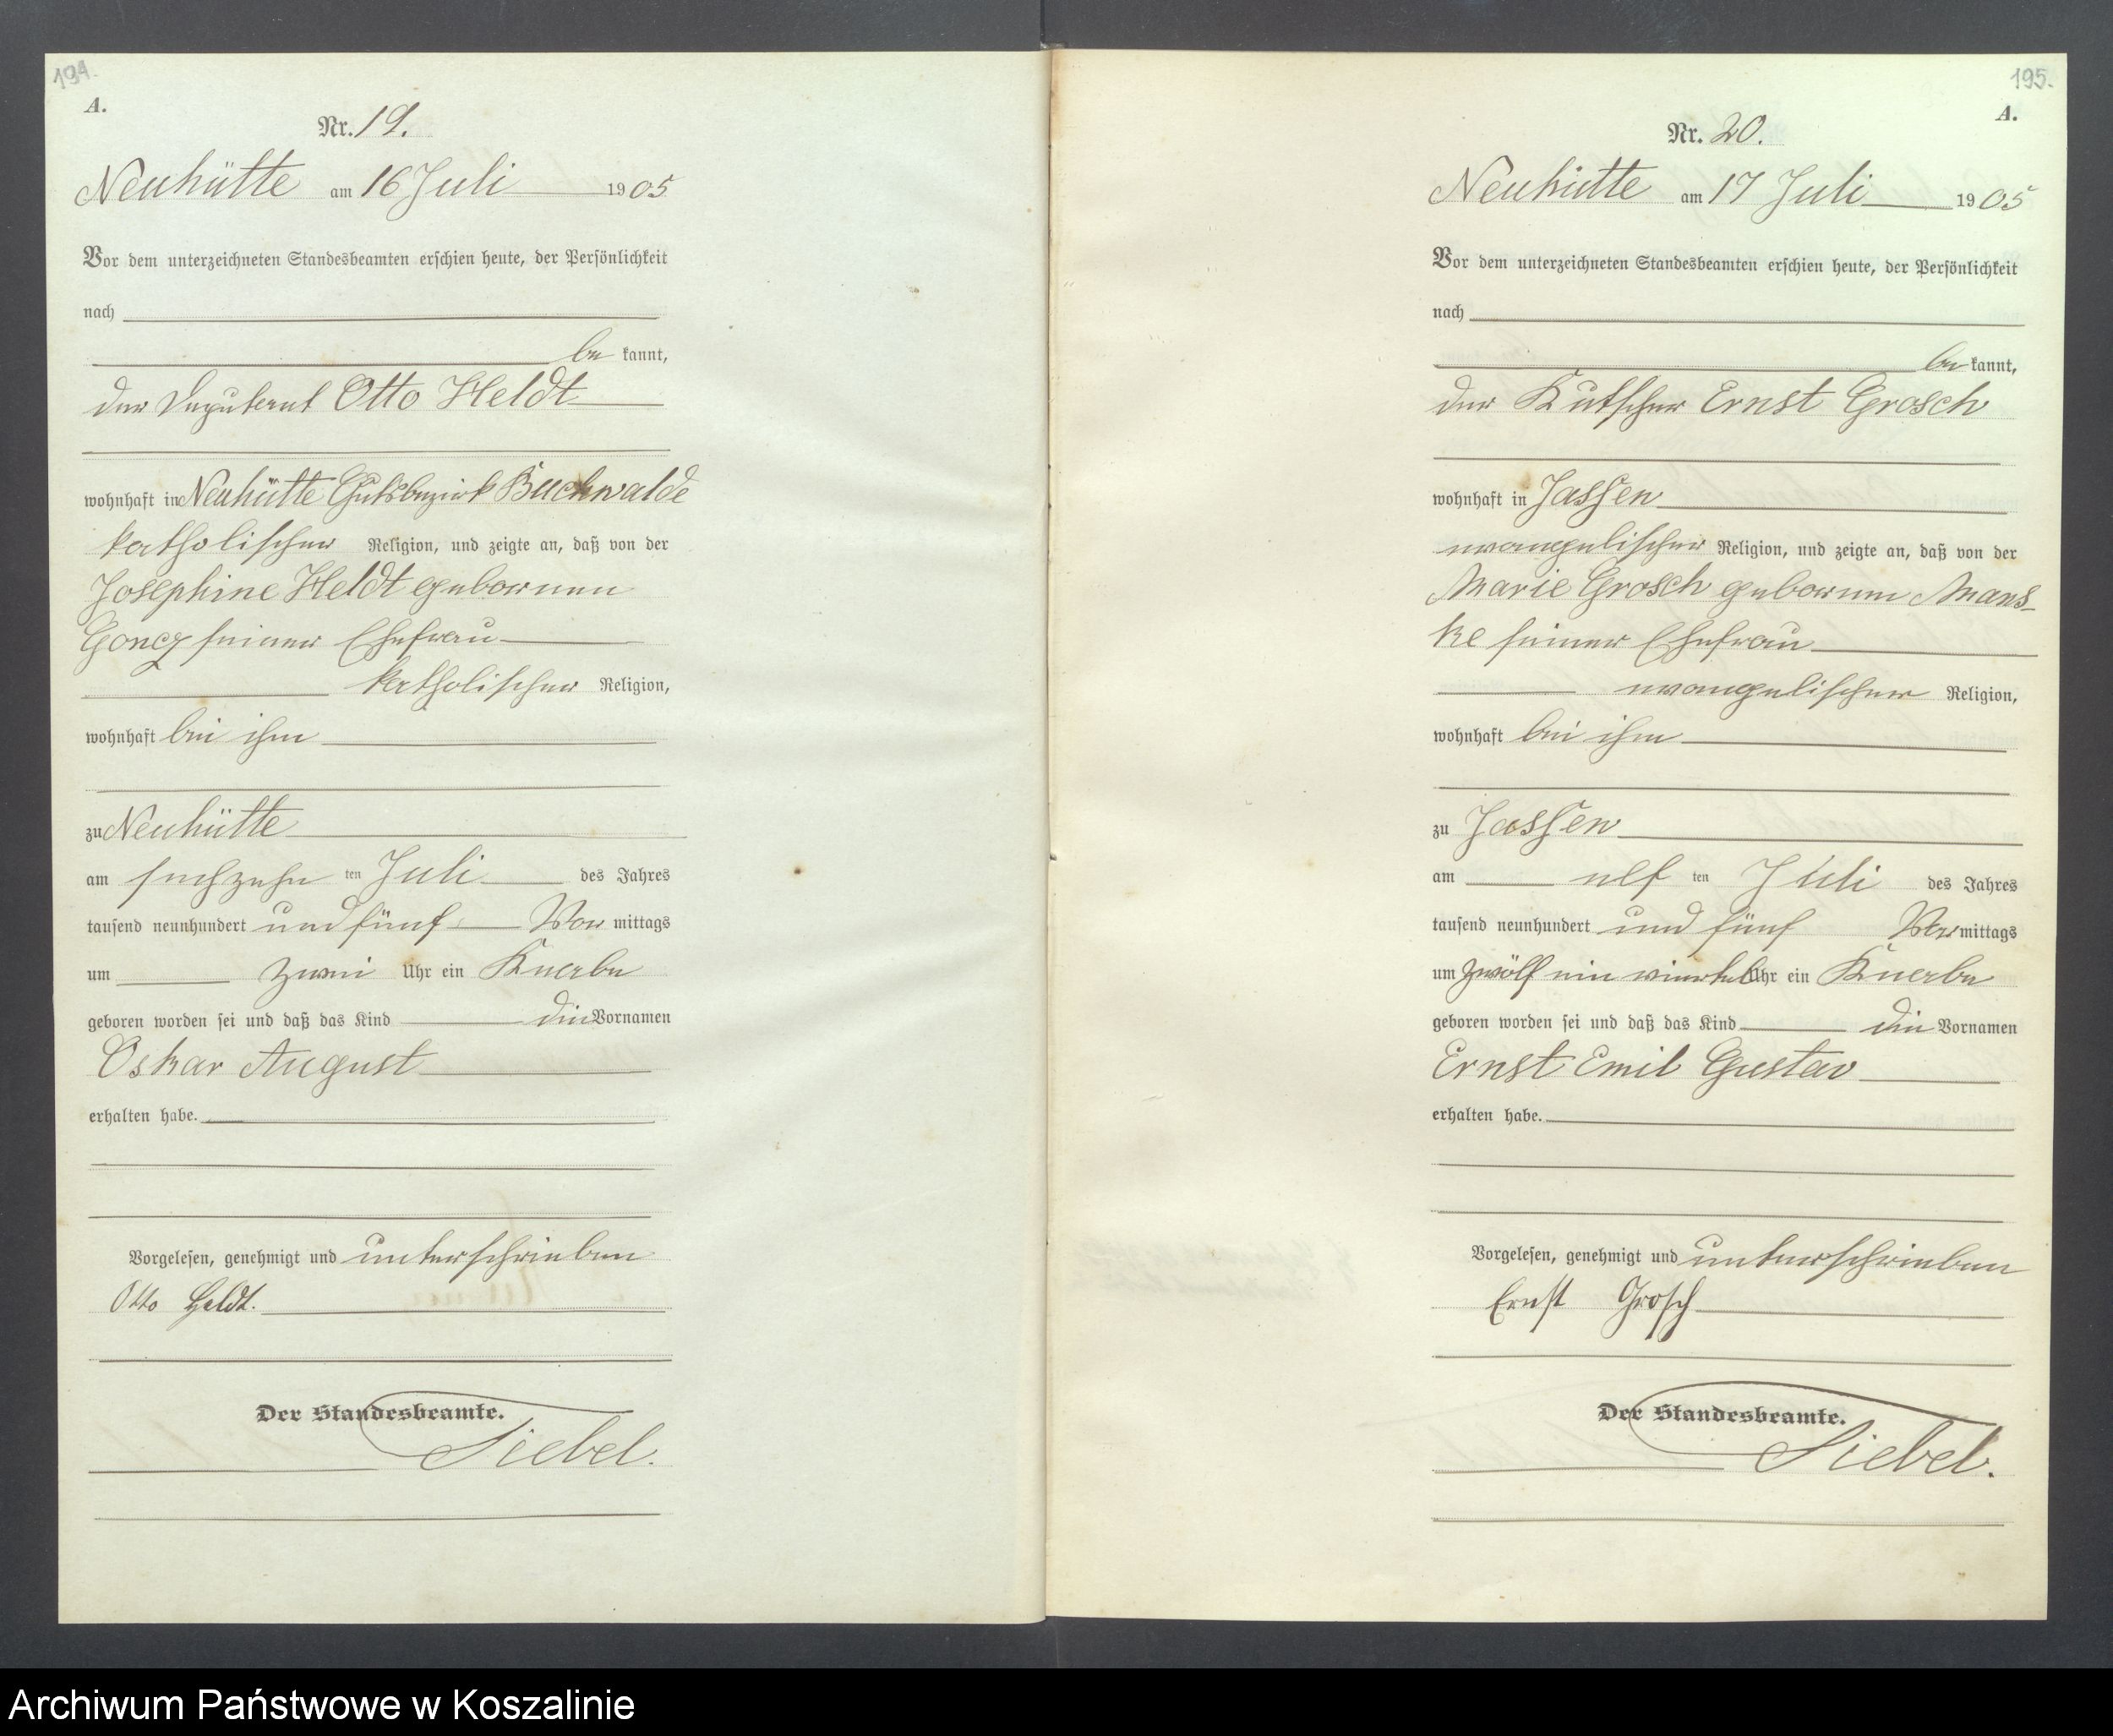 194.
A.
Nr. 19.
Neuhütte am 16 Juli 1905
Vor dem unterzeichneten Standesbeamten erschien heute, der Persönlichkeit
nach
be kannt,
der Deputant Otto Heldt
wohnhaft in Neuhütte Gutsbezirk Buchwalde
katholischer Religion, und zeigte an, daß von der
Josephine Heldt geborenen
Goncz seiner Ehefrau
katholischer Religion,
wohnhaft bei ihm
zu Neuhütte
am sechzehn ten Juli des Jahres
tausend neunhundert und fünf Vor mittags
um zwei Uhr ein Knabe
geboren worden sei und daß das Kind die Vornamen
Oskar August
erhalten habe.
Vorgelesen, genehmigt und unterschrieben
Otto Heldt.
Der Standesbeamte.
Siebel.
195.
A.
Nr. 20.
Neuhütte am 17 Juli 1905
Vor dem unterzeichneten Standesbeamten erschien heute, der Persönlichkeit
nach
be kannt,
der Kutscher Ernst Grosch
wohnhaft in Jassen
evangelischer Religion, und zeigte an, daß von der
Marie Grosch geborenen Mans-
ke seiner Ehefrau
evangelischer Religion,
wohnhaft bei ihm
zu Jassen
am elf ten Juli des Jahres
tausend neunhundert und fünf Vor mittags
um zwölf ein viertel Uhr ein Knabe
geboren worden sei und daß das Kind die Vornamen
Ernst Emil Gustav
erhalten habe.
Vorgelesen, genehmigt und unterschrieben
Ernst Grosch
Der Standesbeamte.
Siebel.
Archiwum Państwowe w Koszalinie